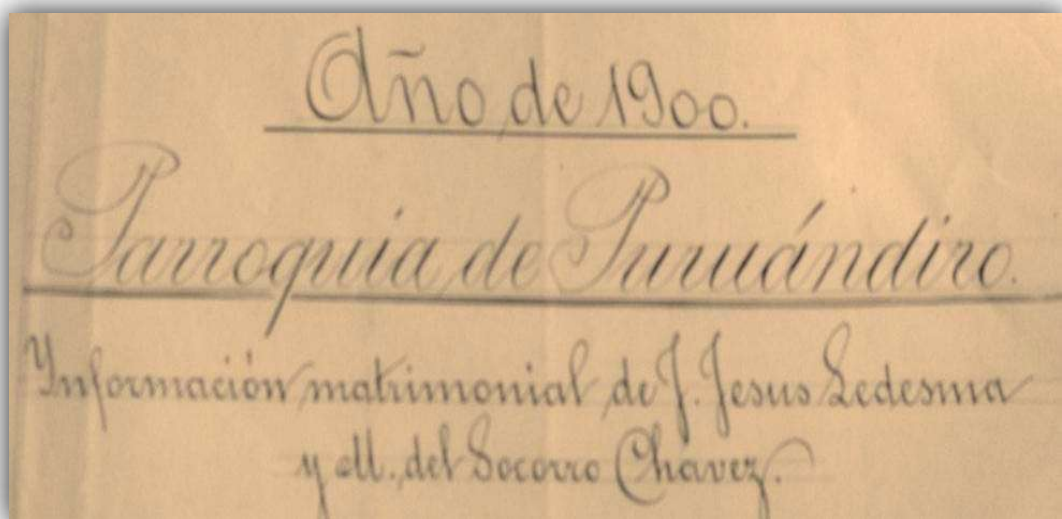 Año de 1900.
Parroquia de Puruándiro.
Información matrimonial de J. Jesus Ledesma
y M. del Socorro Chávez.